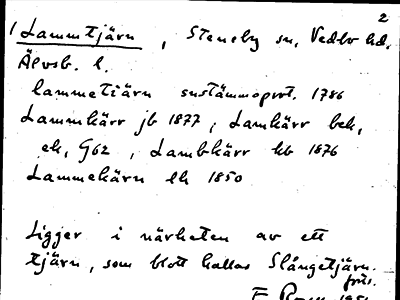 2
1 Lammtjärn, Steneby sn, Vedbo hd,
Älvsb. l.
lammetiärn sustämmoprot. 1786
Lammkärr jb 1877, Lamkärr bek,
ek, G62, Lambkärr hb 1876
Lammekärn lk 1850
Ligger i närheten av ett
tjärn, som blott kallas Slångetjärn.